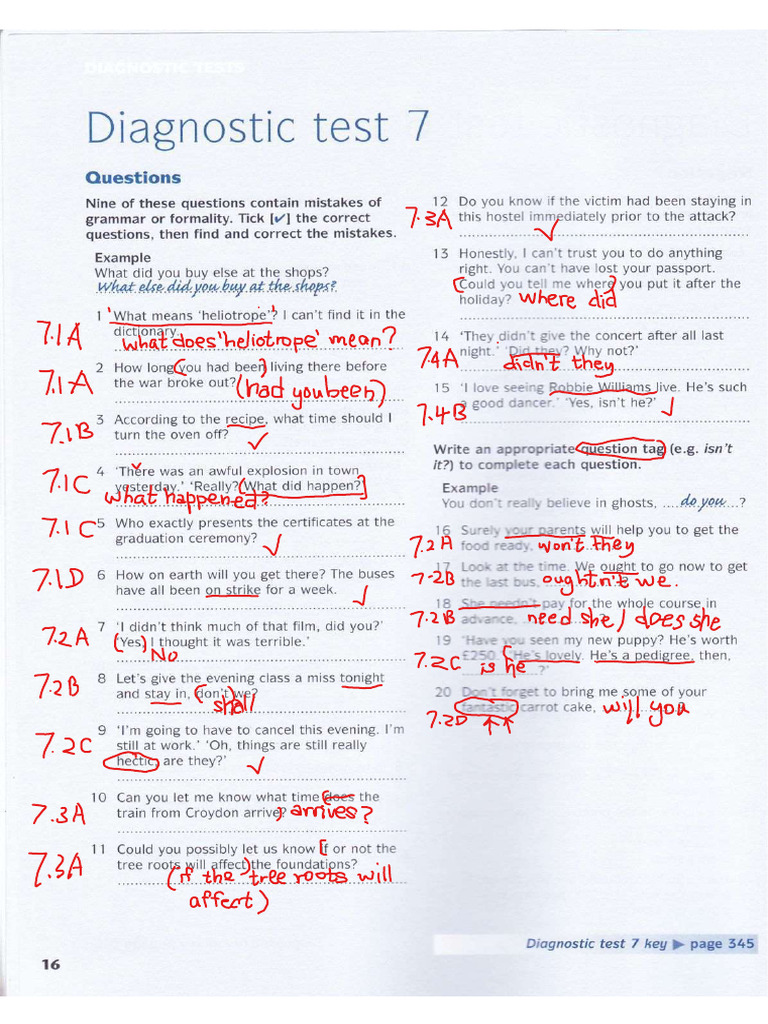 DIAGNOSTIC TESTS
Diagnostic test 7
Questions
Nine of these questions contain mistakes of
grammar or formality. Tick [✔] the correct
questions, then find and correct the mistakes.
Example
What did you buy else at the shops?
What else did you buy at the shops?
1 'What means 'heliotrope'? I can't find it in the
dictionary.
7.1A
what does 'heliotrope' mean?
2 How long (you had been) living there before
the war broke out?
7.1-A
(had you been)
3 According to the recipe, what time should I
turn the oven off? ✓
7.1B
4 'There was an awful explosion in town
yesterday.' 'Really? (What did happen?]
7.1C
what happened?
5 Who exactly presents the certificates at the
graduation ceremony? ✓
7.1C
6 How on earth will you get there? The buses
have all been on strike for a week. ✓
7.1D
7 'I didn't think much of that film, did you?'
'(Yes) I thought it was terrible.'
7.2A
No
8 Let's give the evening class a miss tonight
and stay in, (don't) we?
7.2B
shall
9 'I'm going to have to cancel this evening. I'm
still at work.' 'Oh, things are still really
hectic, are they?' ✓
7.2C
10 Can you let me know what time does the
train from Croydon arrive?
7.3A
arrives?
11 Could you possibly let us know [if or not the
tree roots will affect) the foundations?
7.3A
(if the tree roots will
affect)
12 Do you know if the victim had been staying in
this hostel immediately prior to the attack?
7.3A
✓
13 Honestly, I can't trust you to do anything
right. You can't have lost your passport.
(Could you tell me where) you put it after the
holiday?
where did
14 'They didn't give the concert after all last
night.' 'Did they? Why not?'
7.4A
didn't they
15 'I love seeing Robbie Williams live. He's such
a good dancer.' 'Yes, isn't he?' ✓
7.4B
Write an appropriate question tag (e.g. isn't
it?) to complete each question.
Example
You don't really believe in ghosts, ....do you...?
16 Surely your parents will help you to get the
food ready,
7.2A
won't they
17 Look at the time. We ought to go now to get
the last bus,
7-2B
oughtn't we.
18 She needn't pay for the whole course in
advance,
7.2B
need she / does she
19 'Have you seen my new puppy? He's worth
£250.' 'He's lovely. He's a pedigree, then,
...?'
7.2C
is he
20 Don't forget to bring me some of your
fantastic carrot cake,
7.2D
will you
Diagnostic test 7 key ▶ page 345
16